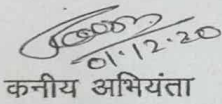 01.12.20
कनीय अभियंता